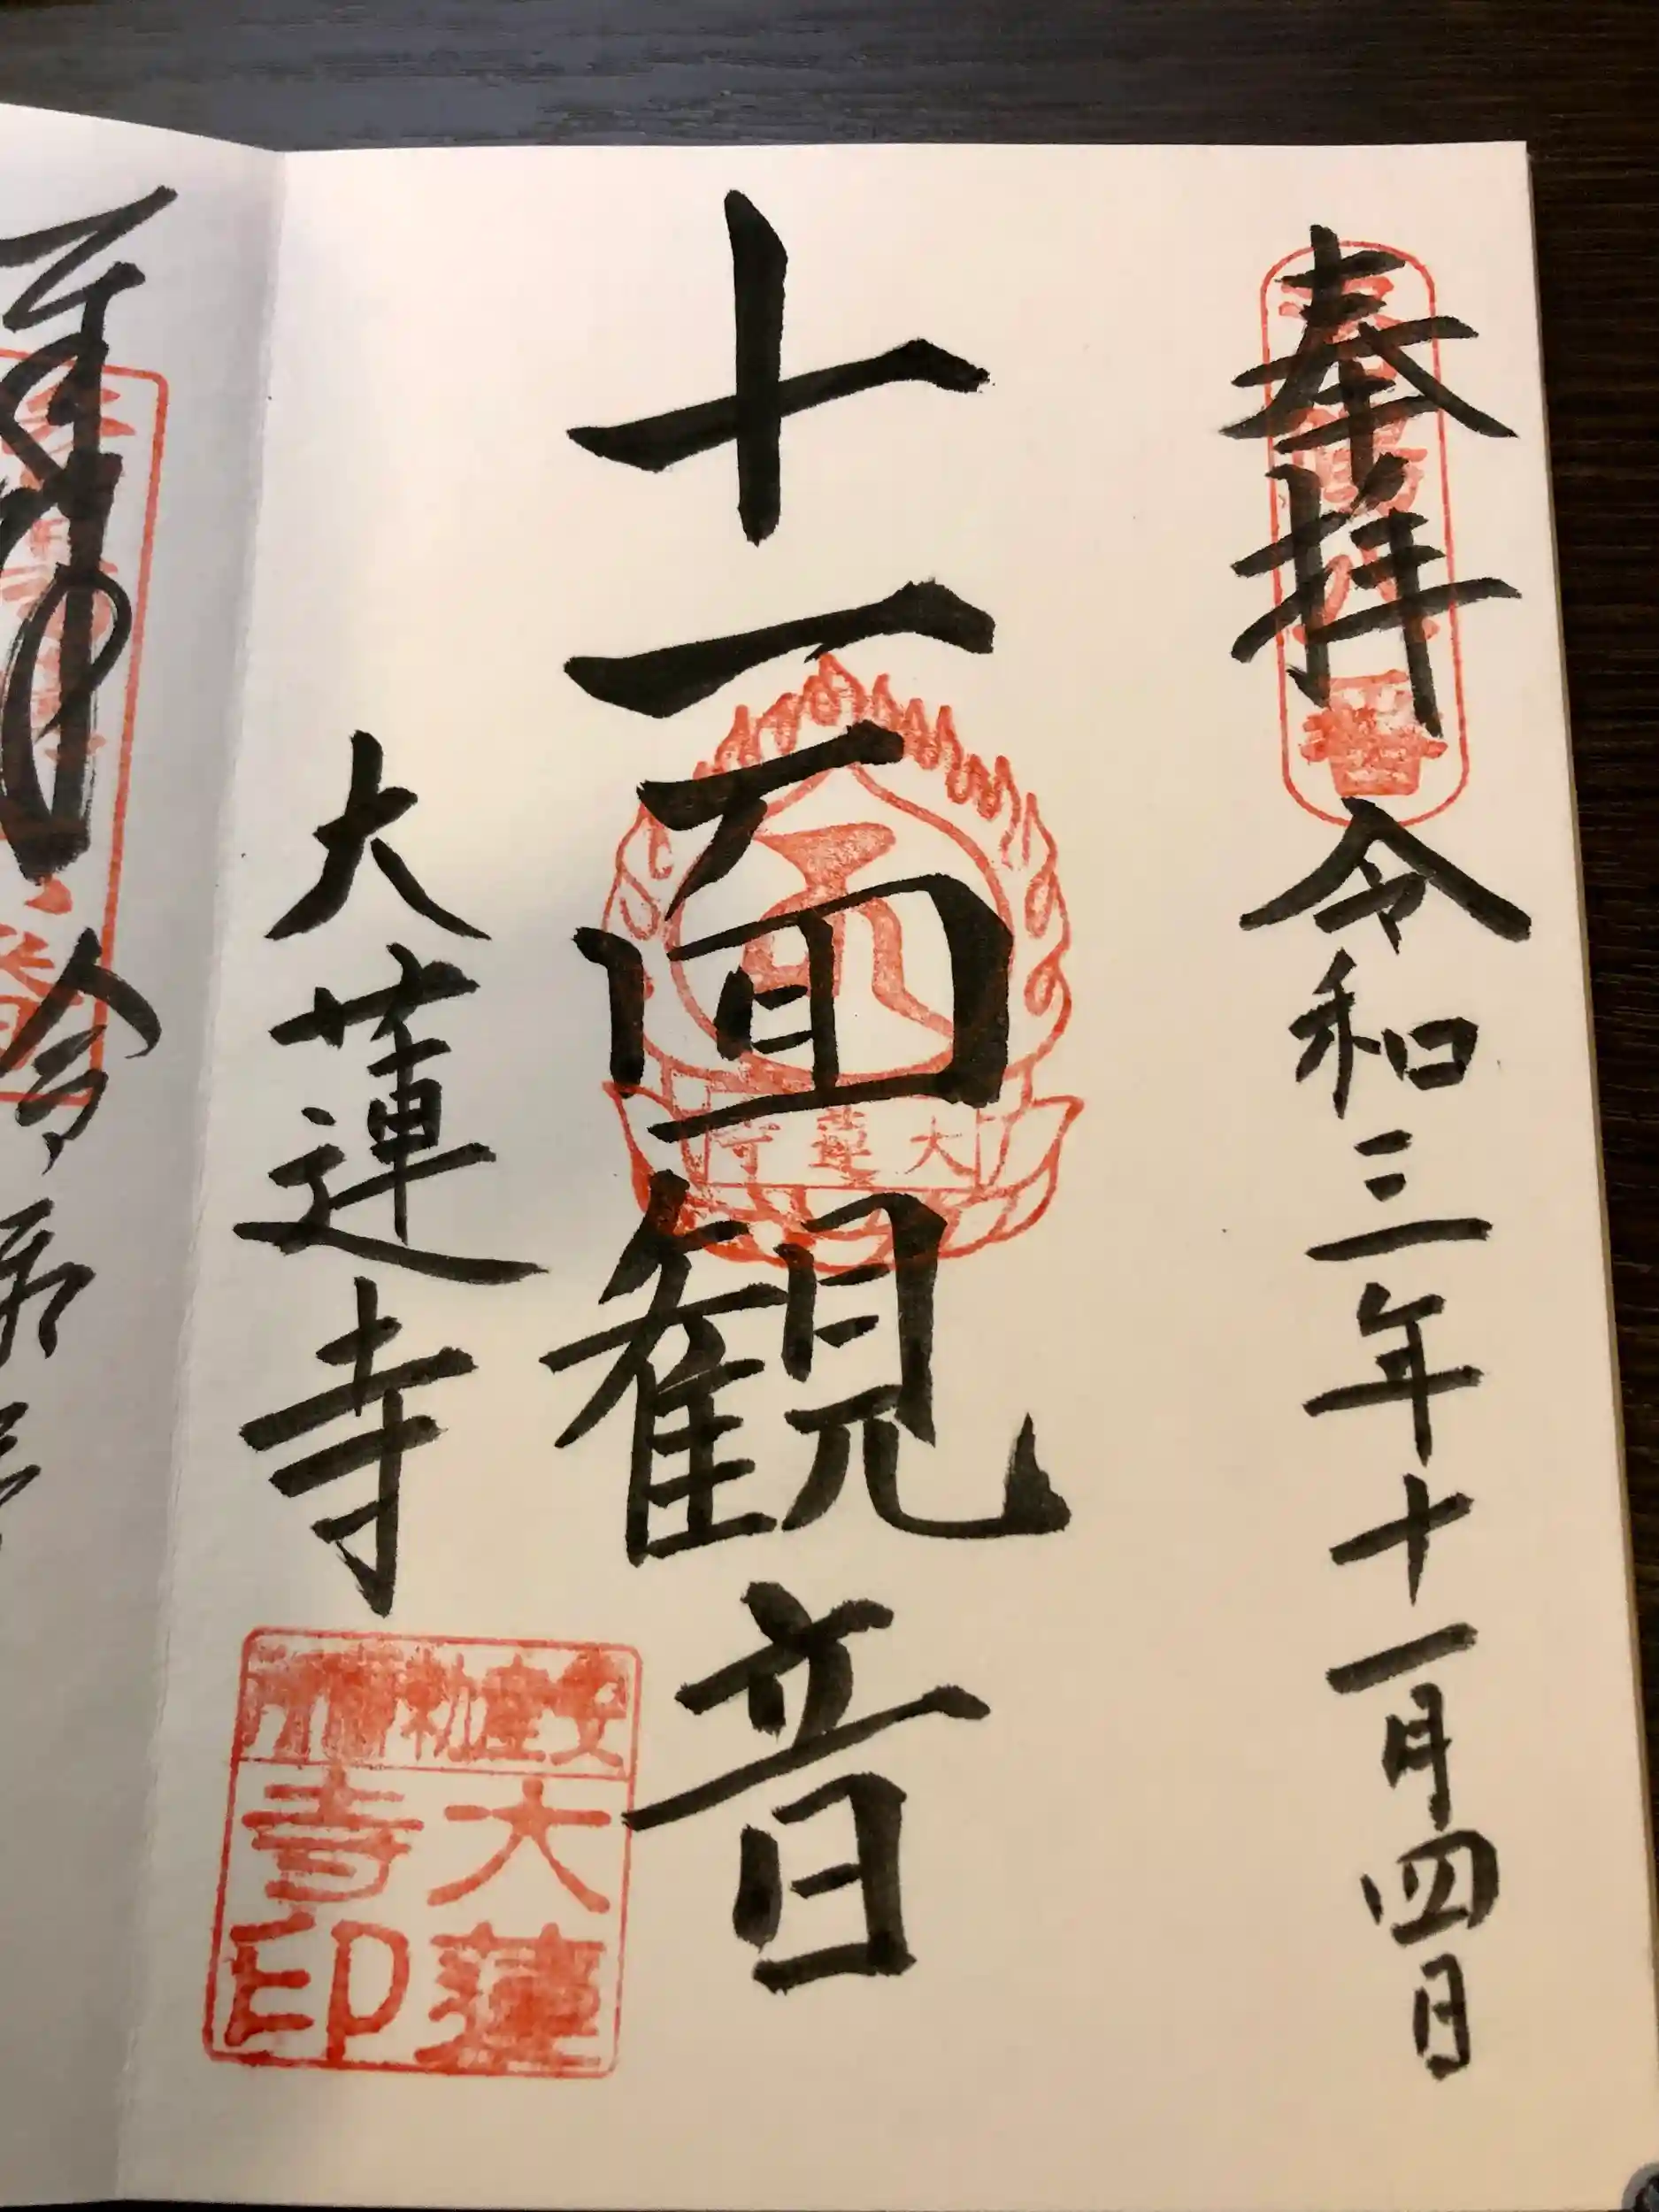 奉拝
令和三年十一月四日
十一面観音
大蓮寺
大蓮寺
安産勅願所
大蓮
寺印
令